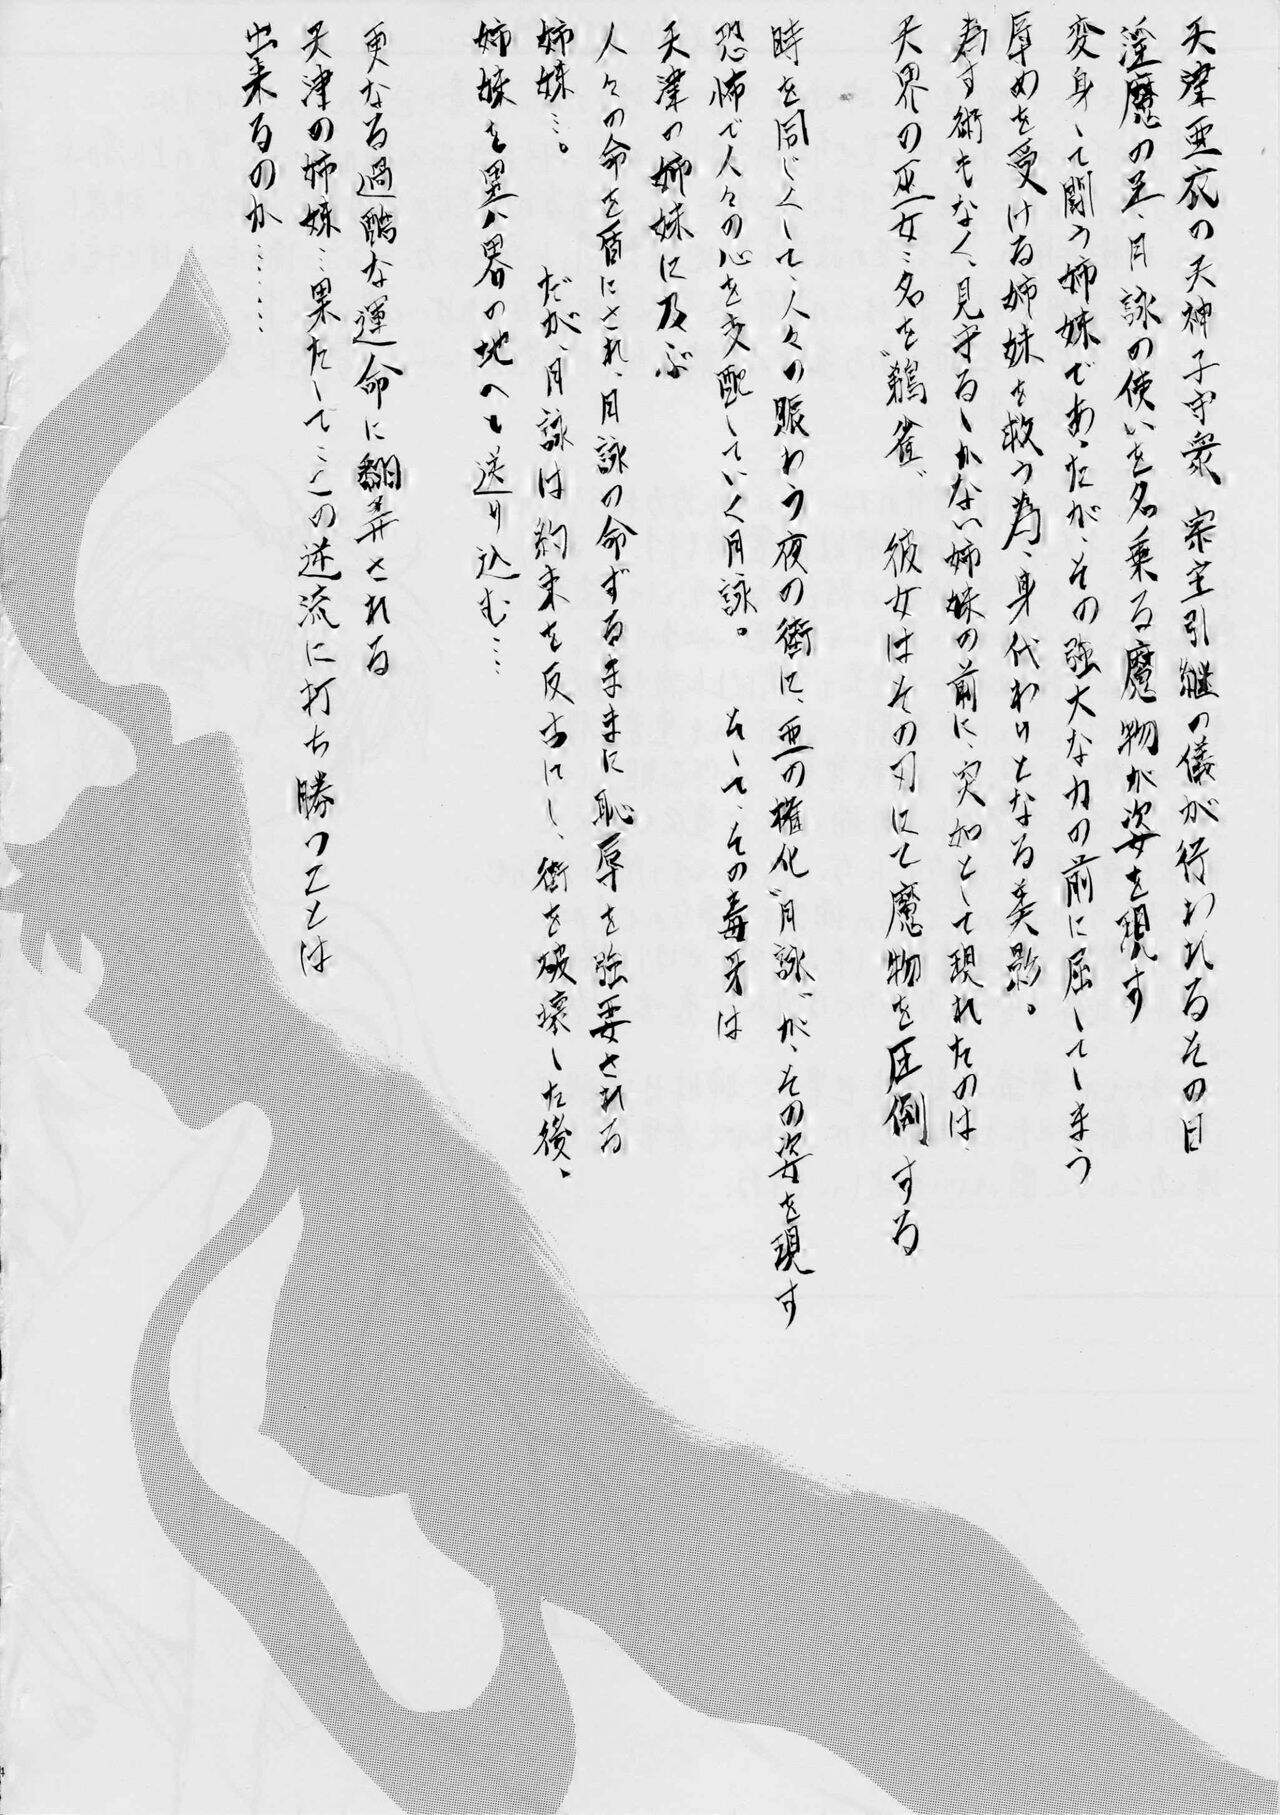 天津亜衣の天神子守衆 宗主引継の儀が行われるその日
淫魔の王、月詠の使いを名乗る魔物が姿を現す
変身して闘う姉妹であったが、その強大な力の前に屈してしまう
辱めを受ける姉妹を救う為、身代わりとなる美影。
為す術もなく、見守るしかない姉妹の前に、突如として現れたのは、
天界の巫女…名を〝鶺雀〟 彼女はその刃にて魔物を圧倒する
時を同じくして、人々の賑わう夜の街に、悪の権化〝月詠〟が、その姿を現す
恐怖で人々の心を支配していく月詠。 そして、その毒牙は
天津の姉妹に及ぶ
人々の命を盾にされ、月詠の命ずるままに恥辱を強要される
姉妹…。 だが、月詠は約束を反古にし、街を破壊した後、
姉妹を黒い界の地へと送り込む…
更なる過酷な運命に翻弄される
天津の姉妹…果たして…この逆流に打ち勝つことは
出来るのか………